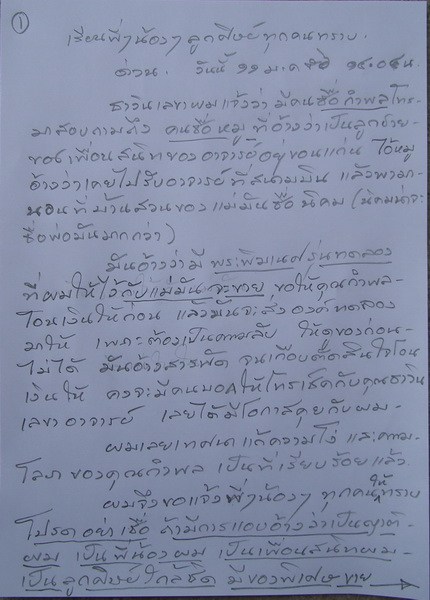 ①
เรียนพี่ๆน้องๆ ลูกศิษย์ทุกคนทราบ.
ด่วน. วันนี้ ๑๑ ม.ค ๑๔.๐๙ น.
ธาวินเลขาผมแจ้งว่า มีคนชื่อ กำพล โทร-
มาสอบถามถึง คนชื่อ หมู ที่อ้างว่าเป็นลูกชาย-
ของเพื่อนสนิทของอาจารย์อยู่ขอนแก่น ไอ้หมู
อ้างว่าเคยไปรับอาจารย์ที่สนามบิน แล้วพามา-
นอนที่บ้านสวนของแม่มันชื่อ นิคม (นิคมน่าจะ
ชื่อพ่อมันมากกว่า)
มันอ้างว่ามี พระพิฆเนศรุ่นทดลอง
ที่ผมให้ไว้กับแม่มัน จะขาย ขอให้คุณกำพล-
โอนเงินให้ก่อน แล้วมันจะส่งองค์ทดลอง
มาให้ เพราะต้องเป็นความลับ ให้ดูของก่อน-
ไม่ได้ มันอ้างสารพัด จนเกือบตัดสินใจโอน
เงินให้ คงจะมีคนบอกให้โทรเช็คกับคุณธาวิน
เลขาอาจารย์ เลยได้มีโอกาสคุยกับผม-
ผมเลยเทศนาแก้ความโง่ และความ-
โลภของคุณกำพล เป็นที่เรียบร้อยแล้ว.
ผมจึงขอแจ้งพี่ๆน้องๆ ทุกคนให้ทราบ
โปรดอย่าเชื่อ ถ้ามีการแอบอ้างว่าเป็นญาติ-
ผม เป็นพี่น้องผม เป็นเพื่อนสนิทผม-
เป็นลูกศิษย์ใกล้ชิด มีของพิเศษขาย